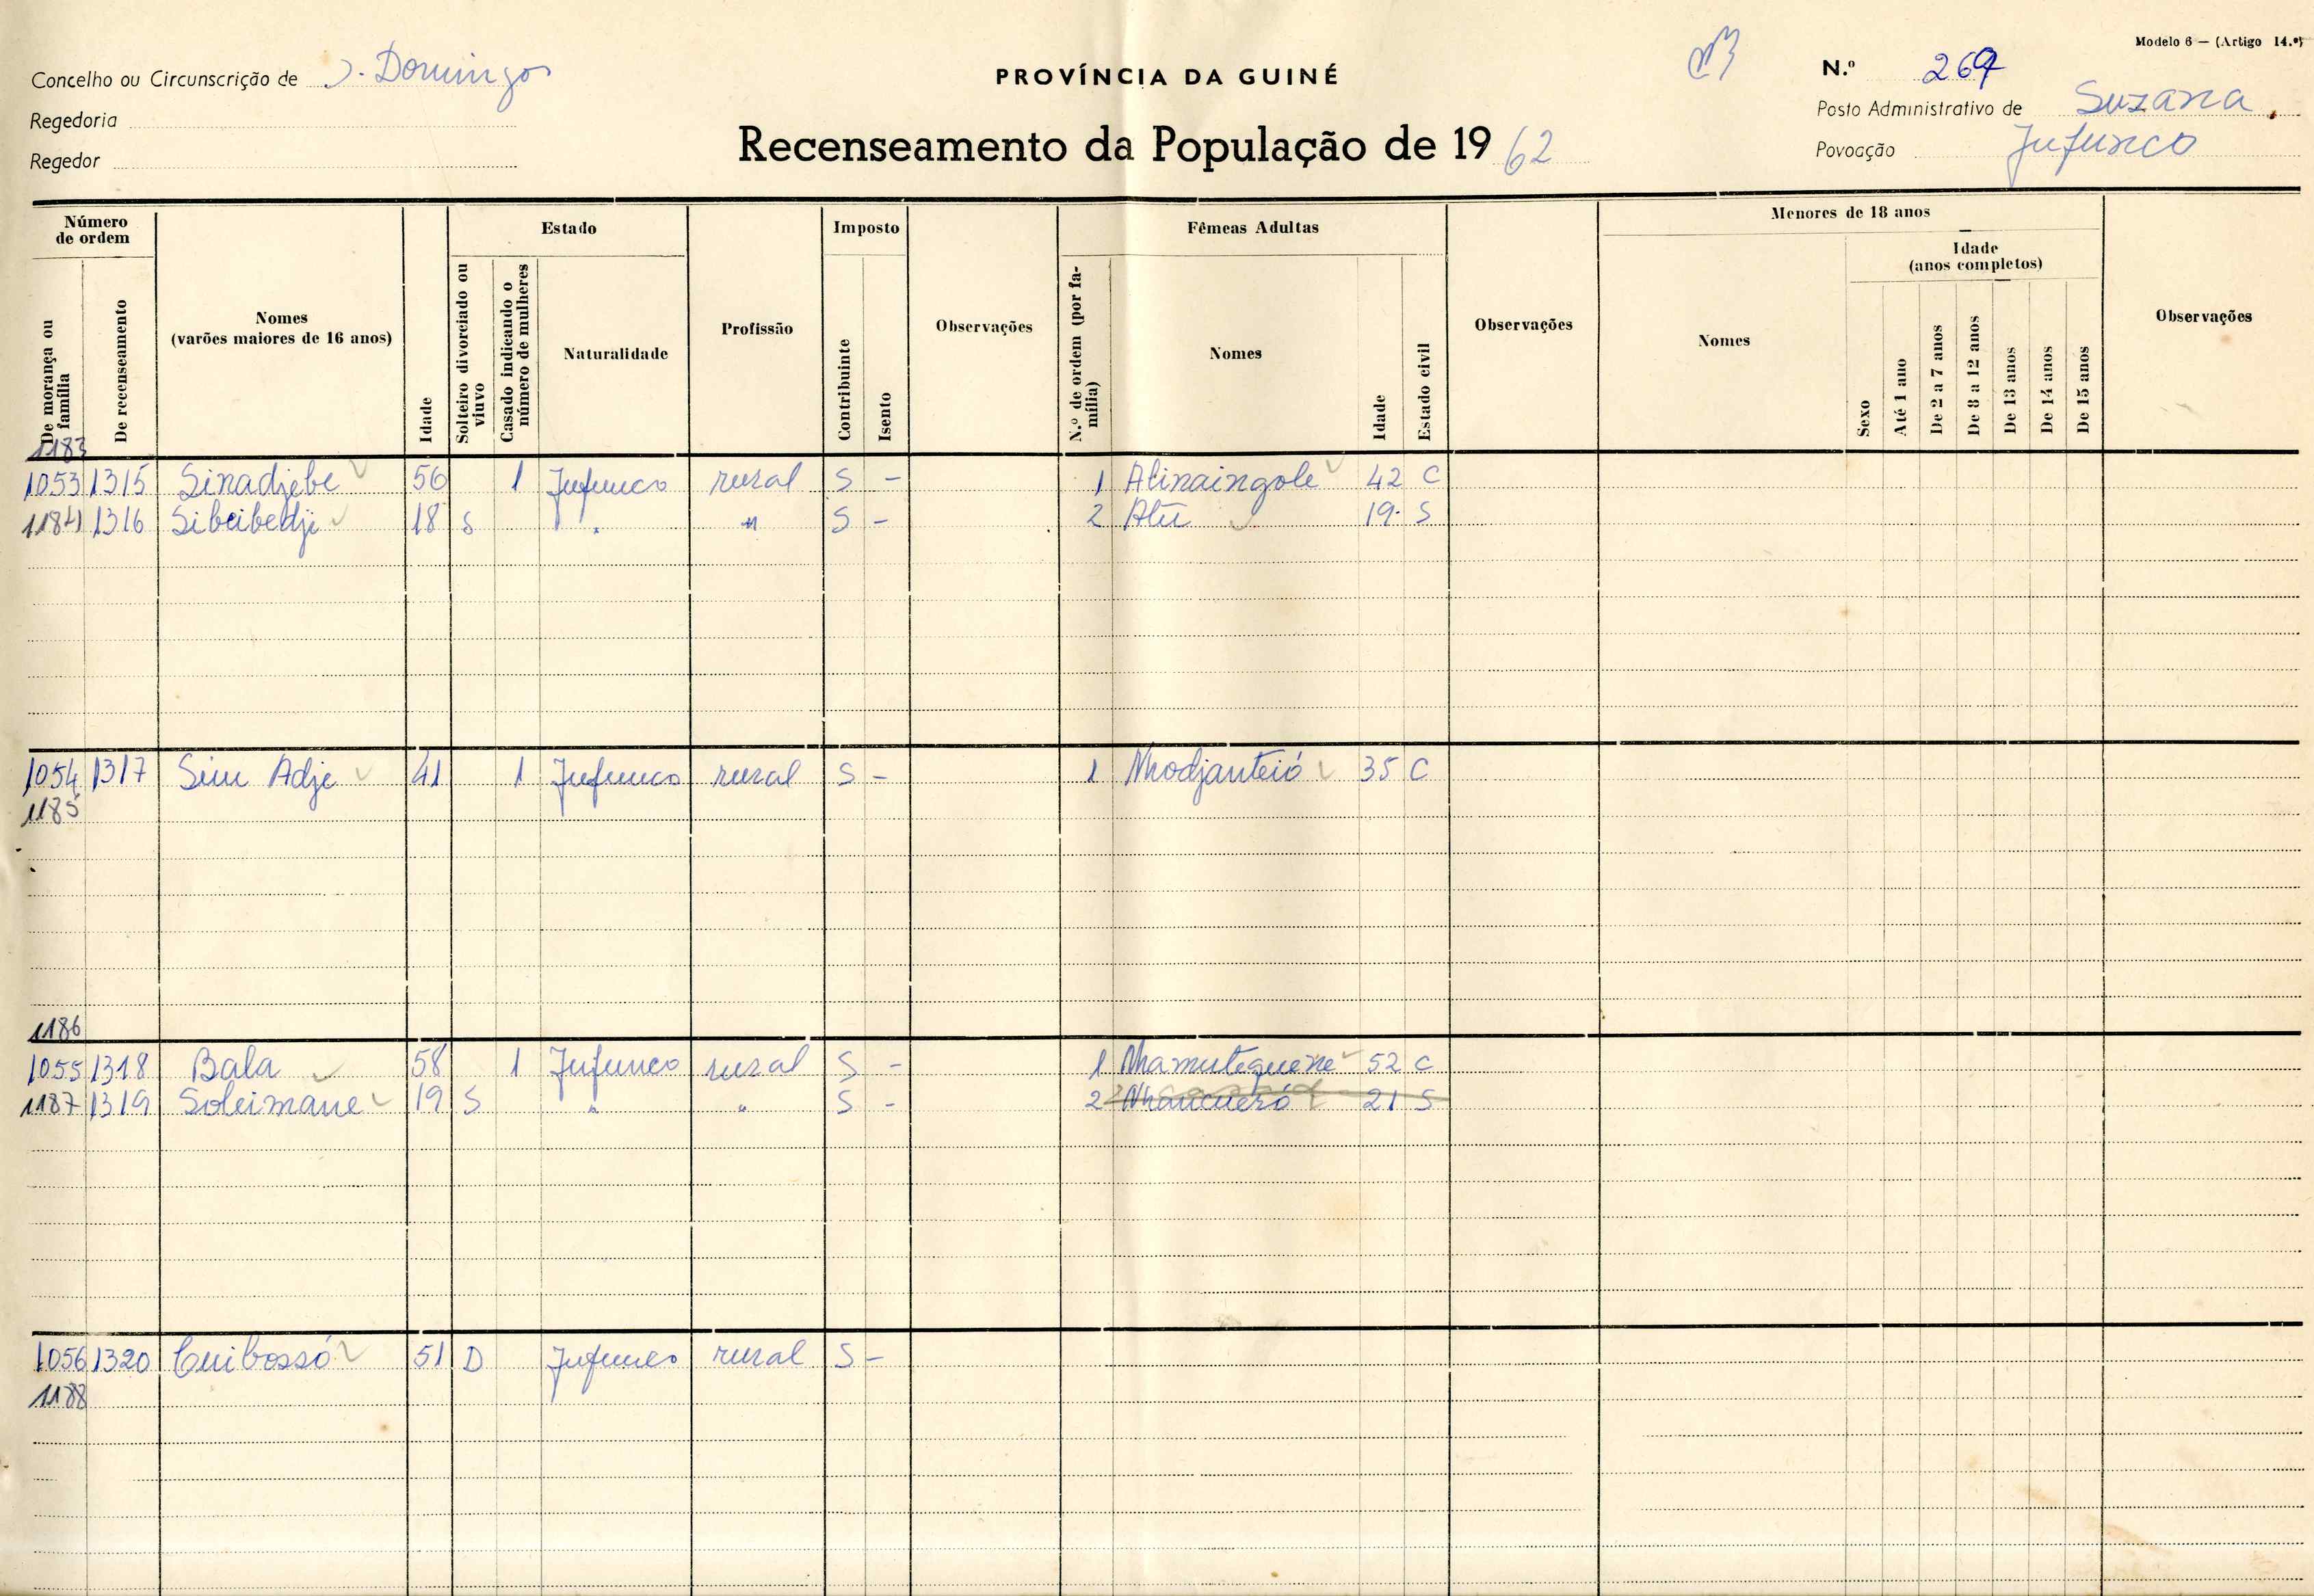 Modelo 6 — (Artigo 14.º)
Concelho ou Circunscrição de S. Domingos
PROVÍNCIA DA GUINÉ
N.º 269
Regedoria
Posto Administrativo de Suzana
Regedor
Recenseamento da População de 1962
Povoação Jufunco
Número de ordem
De morança ou família
De recenseamento
Nomes
(varões maiores de 16 anos)
Idade
Estado
Solteiro divorciado ou viuvo
Casado indicando o número de mulheres
Naturalidade
Profissão
Imposto
Contribuinte
Isento
Observações
Fêmeas Adultas
N.º de ordem (por família)
Nomes
Idade
Estado civil
Observações
Menores de 18 anos
Nomes
Sexo
Idade
(anos completos)
Até 1 ano
De 2 a 7 anos
De 8 a 12 anos
De 13 anos
De 14 anos
De 15 anos
Observações
1183
1053 1315 Sinadjebe 56 1 Jufunco rural S - 1 Alinaingole 42 C
1184 1316 Sibeibedji 18 S " " S - 2 Alú 19 S
1054 1317 Sim Adje 41 1 Jufunco rural S - 1 Nhodjanteió 35 C
1185
1186
1055 1318 Bala 58 1 Jufunco rural S - 1 Nhamuteguene 52 C
1187 1319 Soleimane 19 S " " S - 2 Nhancueró 21 S
1056 1320 Cuibossó 51 D Jufunco rural S -
1188